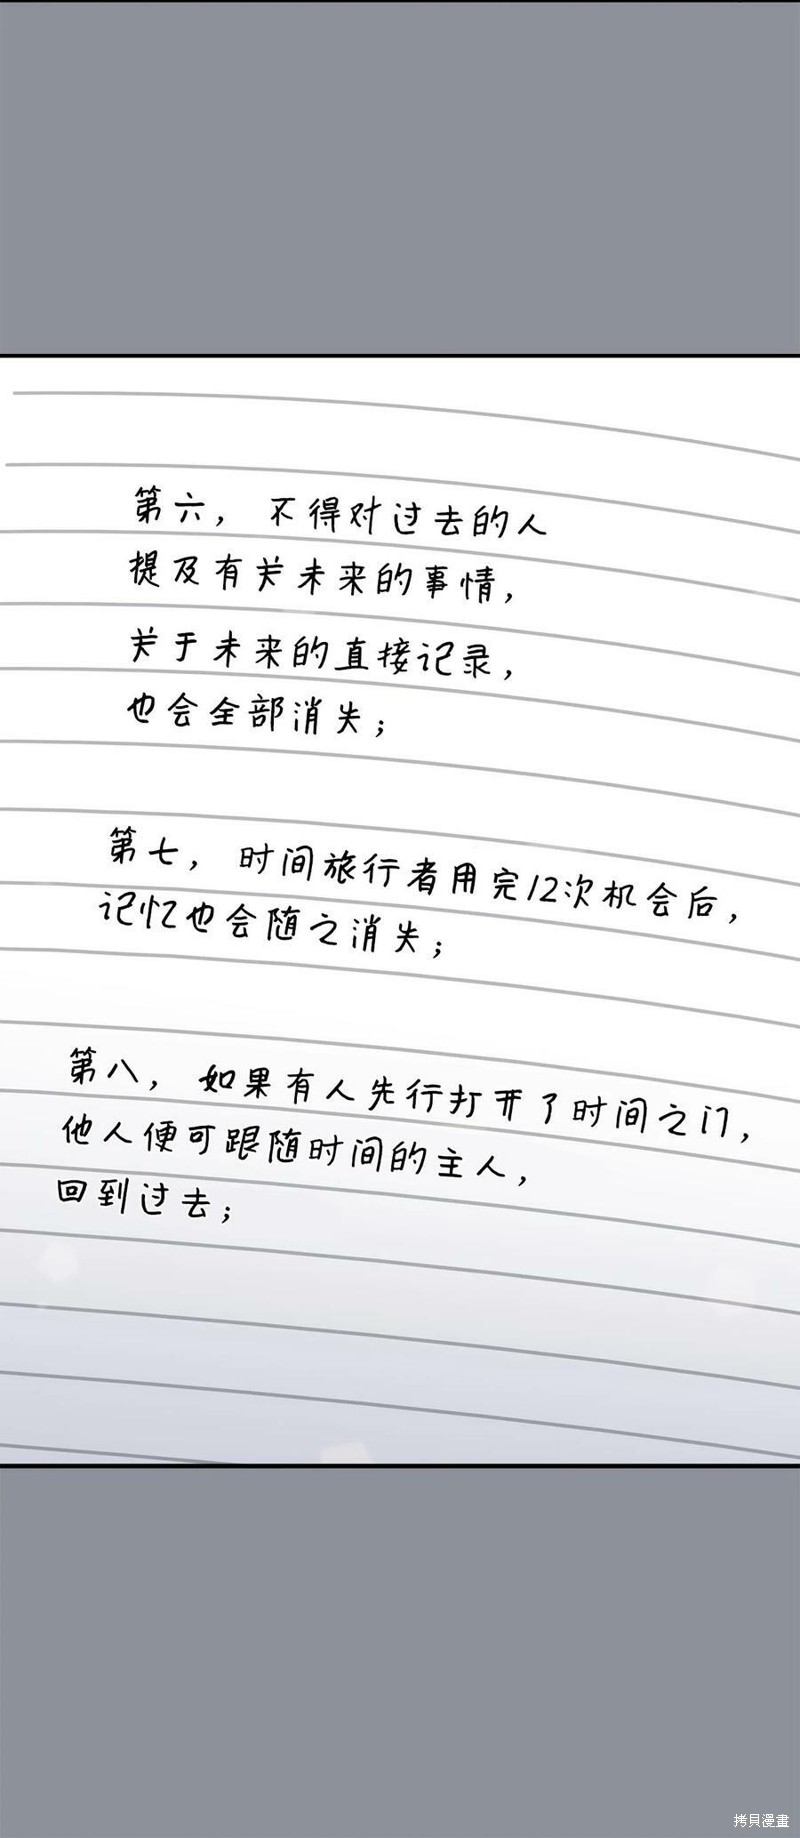 第六，不得对过去的人
提及有关未来的事情，
关于未来的直接记录，
也会全部消失；
第七，时间旅行者用完12次机会后，
记忆也会随之消失；
第八，如果有人先行打开了时间之门，
他人便可跟随时间的主人，
回到过去；
拷貝漫畫